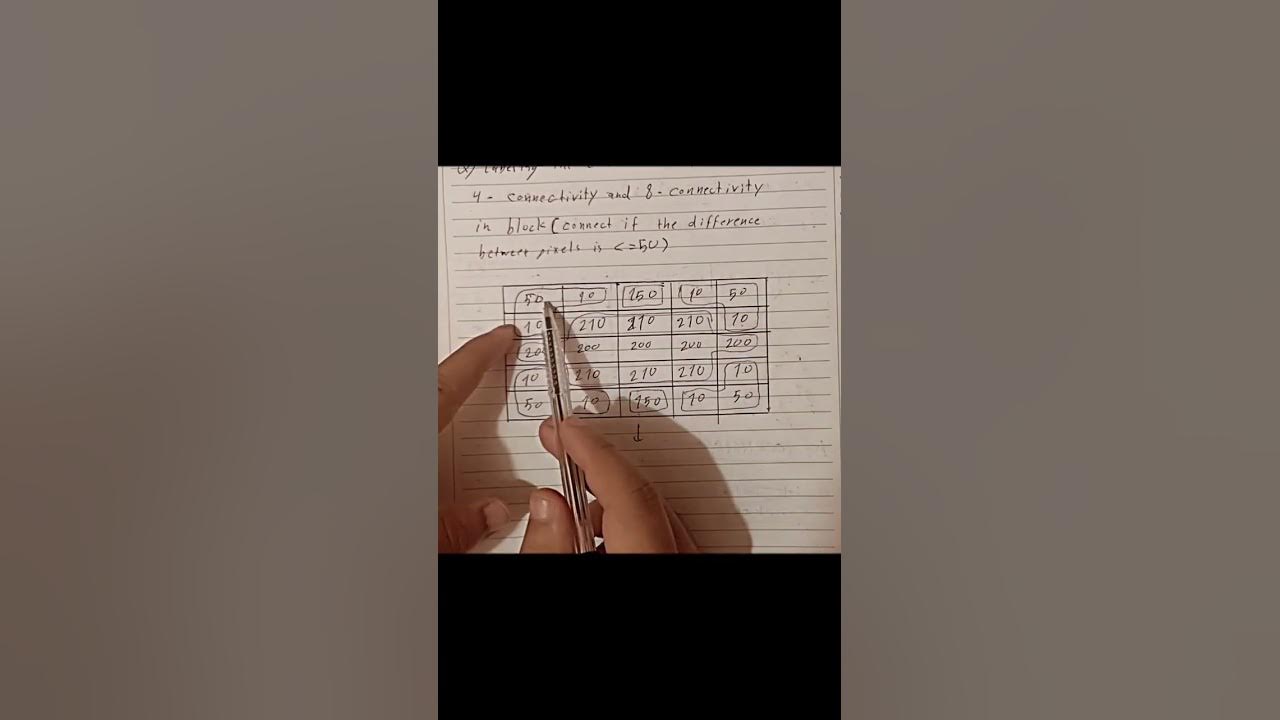 Labeling
4 - connectivity and 8 - connectivity
in block (connect if the difference
between pixels is <=50)
50 10 150 10 50
10 210 210 210 10
20 200 200 200 200
10 210 210 210 10
50 10 150 10 50